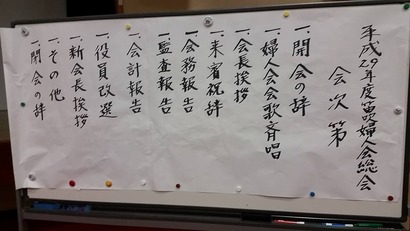 平成29年度苗吹婦人会総会
会次第
一、開会の辞
一、婦人会会歌斉唱
一、会長挨拶
一、来賓祝辞
一、会務報告
一、監査報告
一、会計報告
一、役員改選
一、新会長挨拶
一、その他
一、閉会の辞